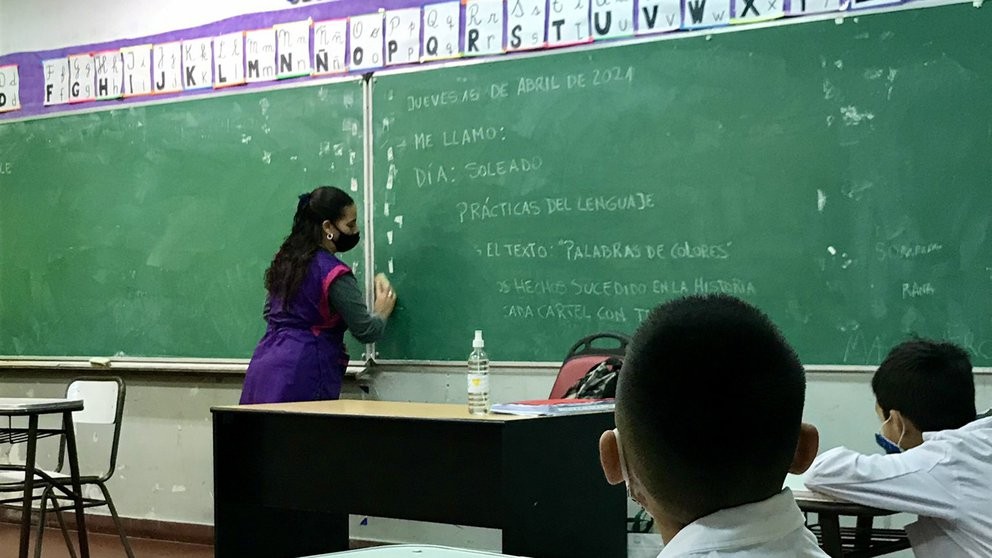 D d
F f G g H h I i J j K k L l M m N n Ñ ñ O o P p Q q R r S s T t U u V v W w X x
LE
JUEVES 15 DE ABRIL DE 2021
ME LLAMO:
DÍA: SOLEADO
PRÁCTICAS DEL LENGUAJE
EL TEXTO: "PALABRAS DE COLORES"
OS HECHOS SUCEDIDO EN LA HISTORIA
CADA CARTEL CON
RANA